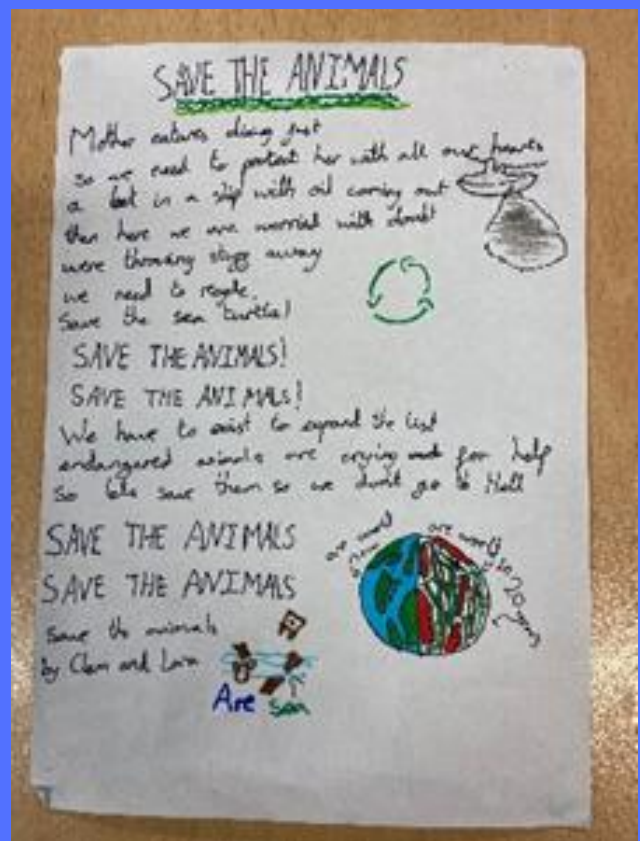 SAVE THE ANIMALS
Mother natures dieing just
so we need to protect her with all our hearts
a boat in a ship with oil coming out
then here we are worried with doubt
were throwing stuff away
we need to recycle,
Save the sea turtles!
SAVE THE ANIMALS!
SAVE THE ANIMALS!
We have to exist to expand the list
endangered animals are crying out for help
So lets save them so we dont go to Hell
SAVE THE ANIMALS
SAVE THE ANIMALS
are world now
are world in 20 years
Save the animals
by Clem and
Are sea